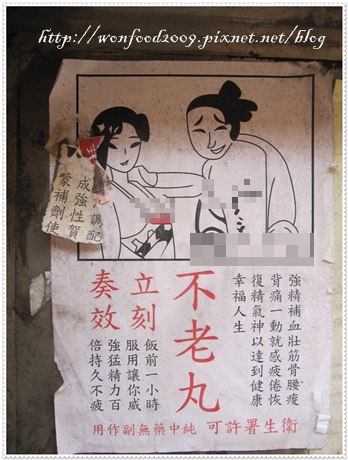 http://wonfood2009.pixnet.net/blog
調配
成強性賀
篆補劑使
強精補血壯筋骨腰痠
背痛一動就感疲倦恢
復精氣神以達到健康
幸福人生
不老丸
立刻
奏效
飯前一小時
服用讓你威
強猛精力百
倍持久不疲
衛生署許可 純中藥無副作用